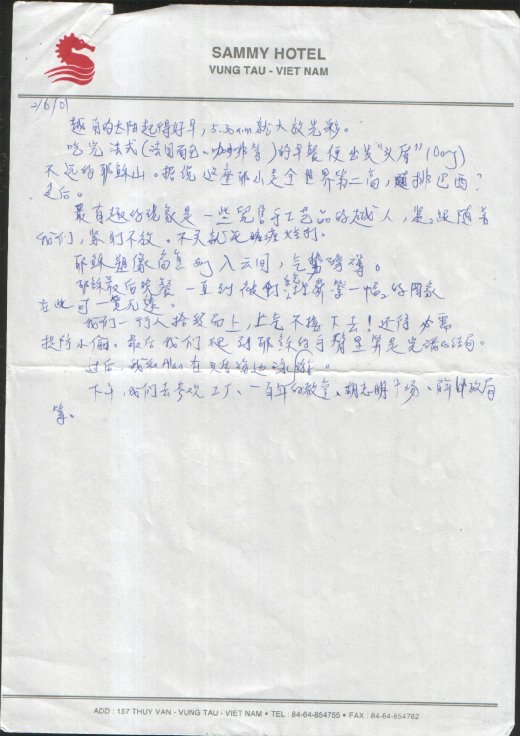 SAMMY HOTEL
VUNG TAU - VIET NAM
2/6/01
越南的太阳起得好早，5.30am就大放光彩。
吃完法式(法国面包、咖啡等)的早餐便出发
不远的耶稣山。据说这座耶山是全世界第二高，排巴西?
之后。
最有趣的现象是一些兜售手工艺品的越人，紧跟随着
我们，紧盯不放。不买就死缠烂打。
耶稣塑像高直入云间，气势磅礴。
耶稣最后晚餐一直到被钉等一幅幅的图象
在此可一览无遗。
我们一行人拾级而上，上气不接下气！还得必需
提防小偷。最后我们爬到耶稣的手臂里算是完满的结局。
过后，我和Alan在
下午，我们去参观工厂、一百年的教堂、胡志明广场、前邮政局
等。
ADD : 157 THUY VAN - VUNG TAU - VIET NAM • TEL : 84-64-854755 • FAX : 84-64-854762